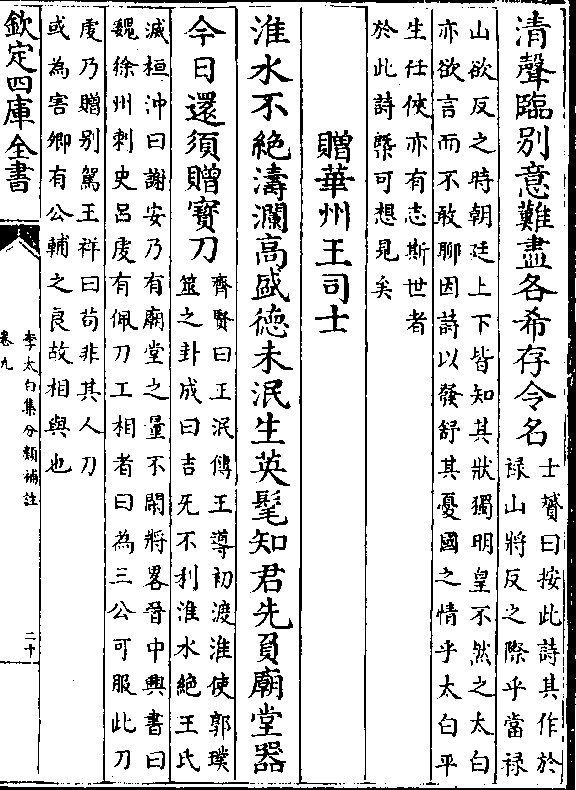 清聲臨别意難盡各希存令名
士贇曰按此詩其作於
禄山將反之際乎當禄
山欲反之時朝廷上下皆知其狀獨明皇不然之太白
亦欲言而不敢聊因詩以發舒其憂國之情乎太白平
生任俠亦有志斯世者
於此詩槩可想見矣
贈華州王司士
淮水不絶濤瀾高盛徳未泯生英髦知君先負廟堂器
今日還須贈寳刀
齊賢曰王泯傳王導初渡淮使郭璞
筮之卦成曰吉旡不利淮水絶王氏
滅桓沖曰謝安乃有廟堂之量不閑將畧晉中興書曰
魏徐州刺史吕䖍有佩刀工相者曰為三公可服此刀
䖍乃贈别駕王祥曰苟非其人刀
或為害卿有公輔之良故相與也
欽定四庫全書
李太白集分類補註
卷九
二十